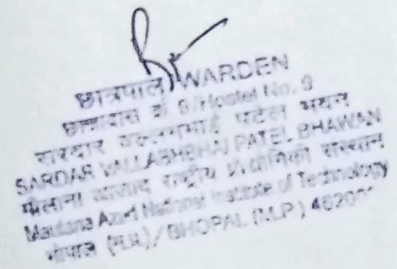 छात्रपाल / WARDEN
छात्रावास क्रं. 9/Hostel No. 9
सरदार वल्लभभाई पटेल भवन
SARDAR VALLABHBHAI PATEL BHAWAN
मौलाना आजाद राष्ट्रीय प्रौद्योगिकी संस्थान
Maulana Azad National Institute of Technology
भोपाल (म.प्र.) / BHOPAL (M.P.)